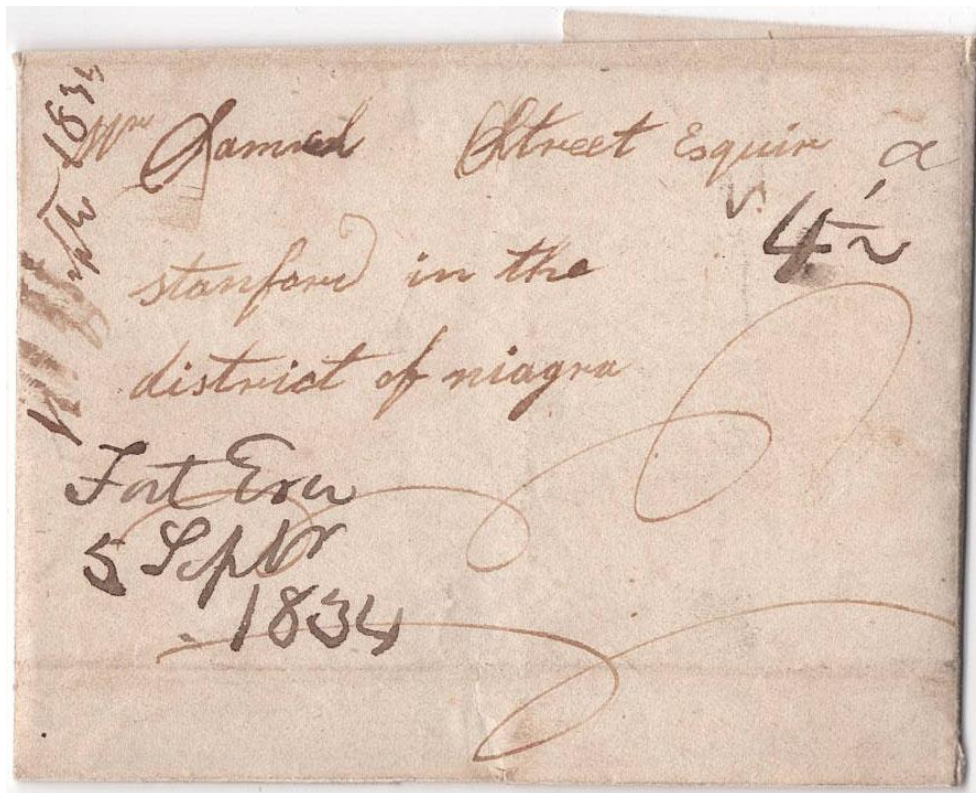 Mr Samuel Street Esquir a
4½
stanford in the
district of niagra
Fort Erie
5 Septbr
1834
1834